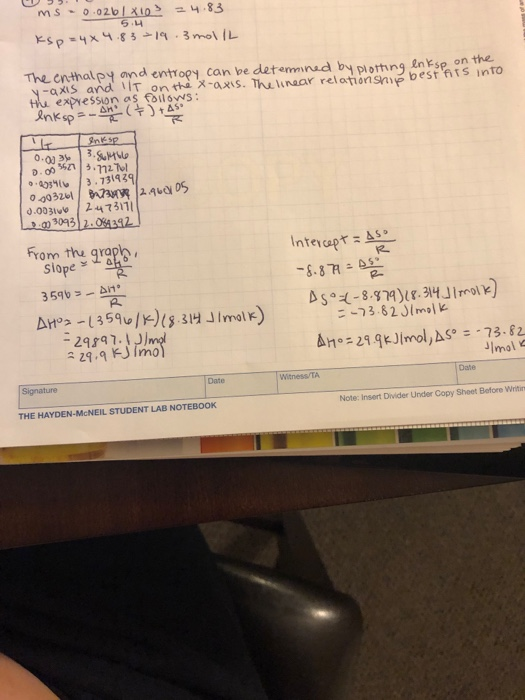 ms = 0.0261 x 10³ / 5.4 = 4.83
Ksp = 4 x 4.83 = 19.3 mol/L
The enthalpy and entropy can be determined by plotting lnksp on the
y-axis and 1/T on the x-axis. The linear relationship best fits into
the expression as follows:
lnksp = - ΔH°/R (1/T) + ΔS°/R
1/T lnksp
0.0036
0.003527 3.772761
0.003416 3.731939
0.003261 2.960105
0.003166 2.473171
0.003093 2.084392
From the graph,
slope = ΔH°/R
3596 = - ΔH°/R
ΔH° = -(3596/K)(8.314 J/molK)
= 29897.1 J/mol
= 29.9 KJ/mol
Intercept = ΔS°/R
-8.879 = ΔS°/R
ΔS° = (-8.879)(8.314 J/molK)
= -73.82 J/molK
ΔH° = 29.9KJ/mol, ΔS° = -73.82
J/mol K
Signature Date Witness/TA Date
THE HAYDEN-McNEIL STUDENT LAB NOTEBOOK
Note: Insert Divider Under Copy Sheet Before Writin